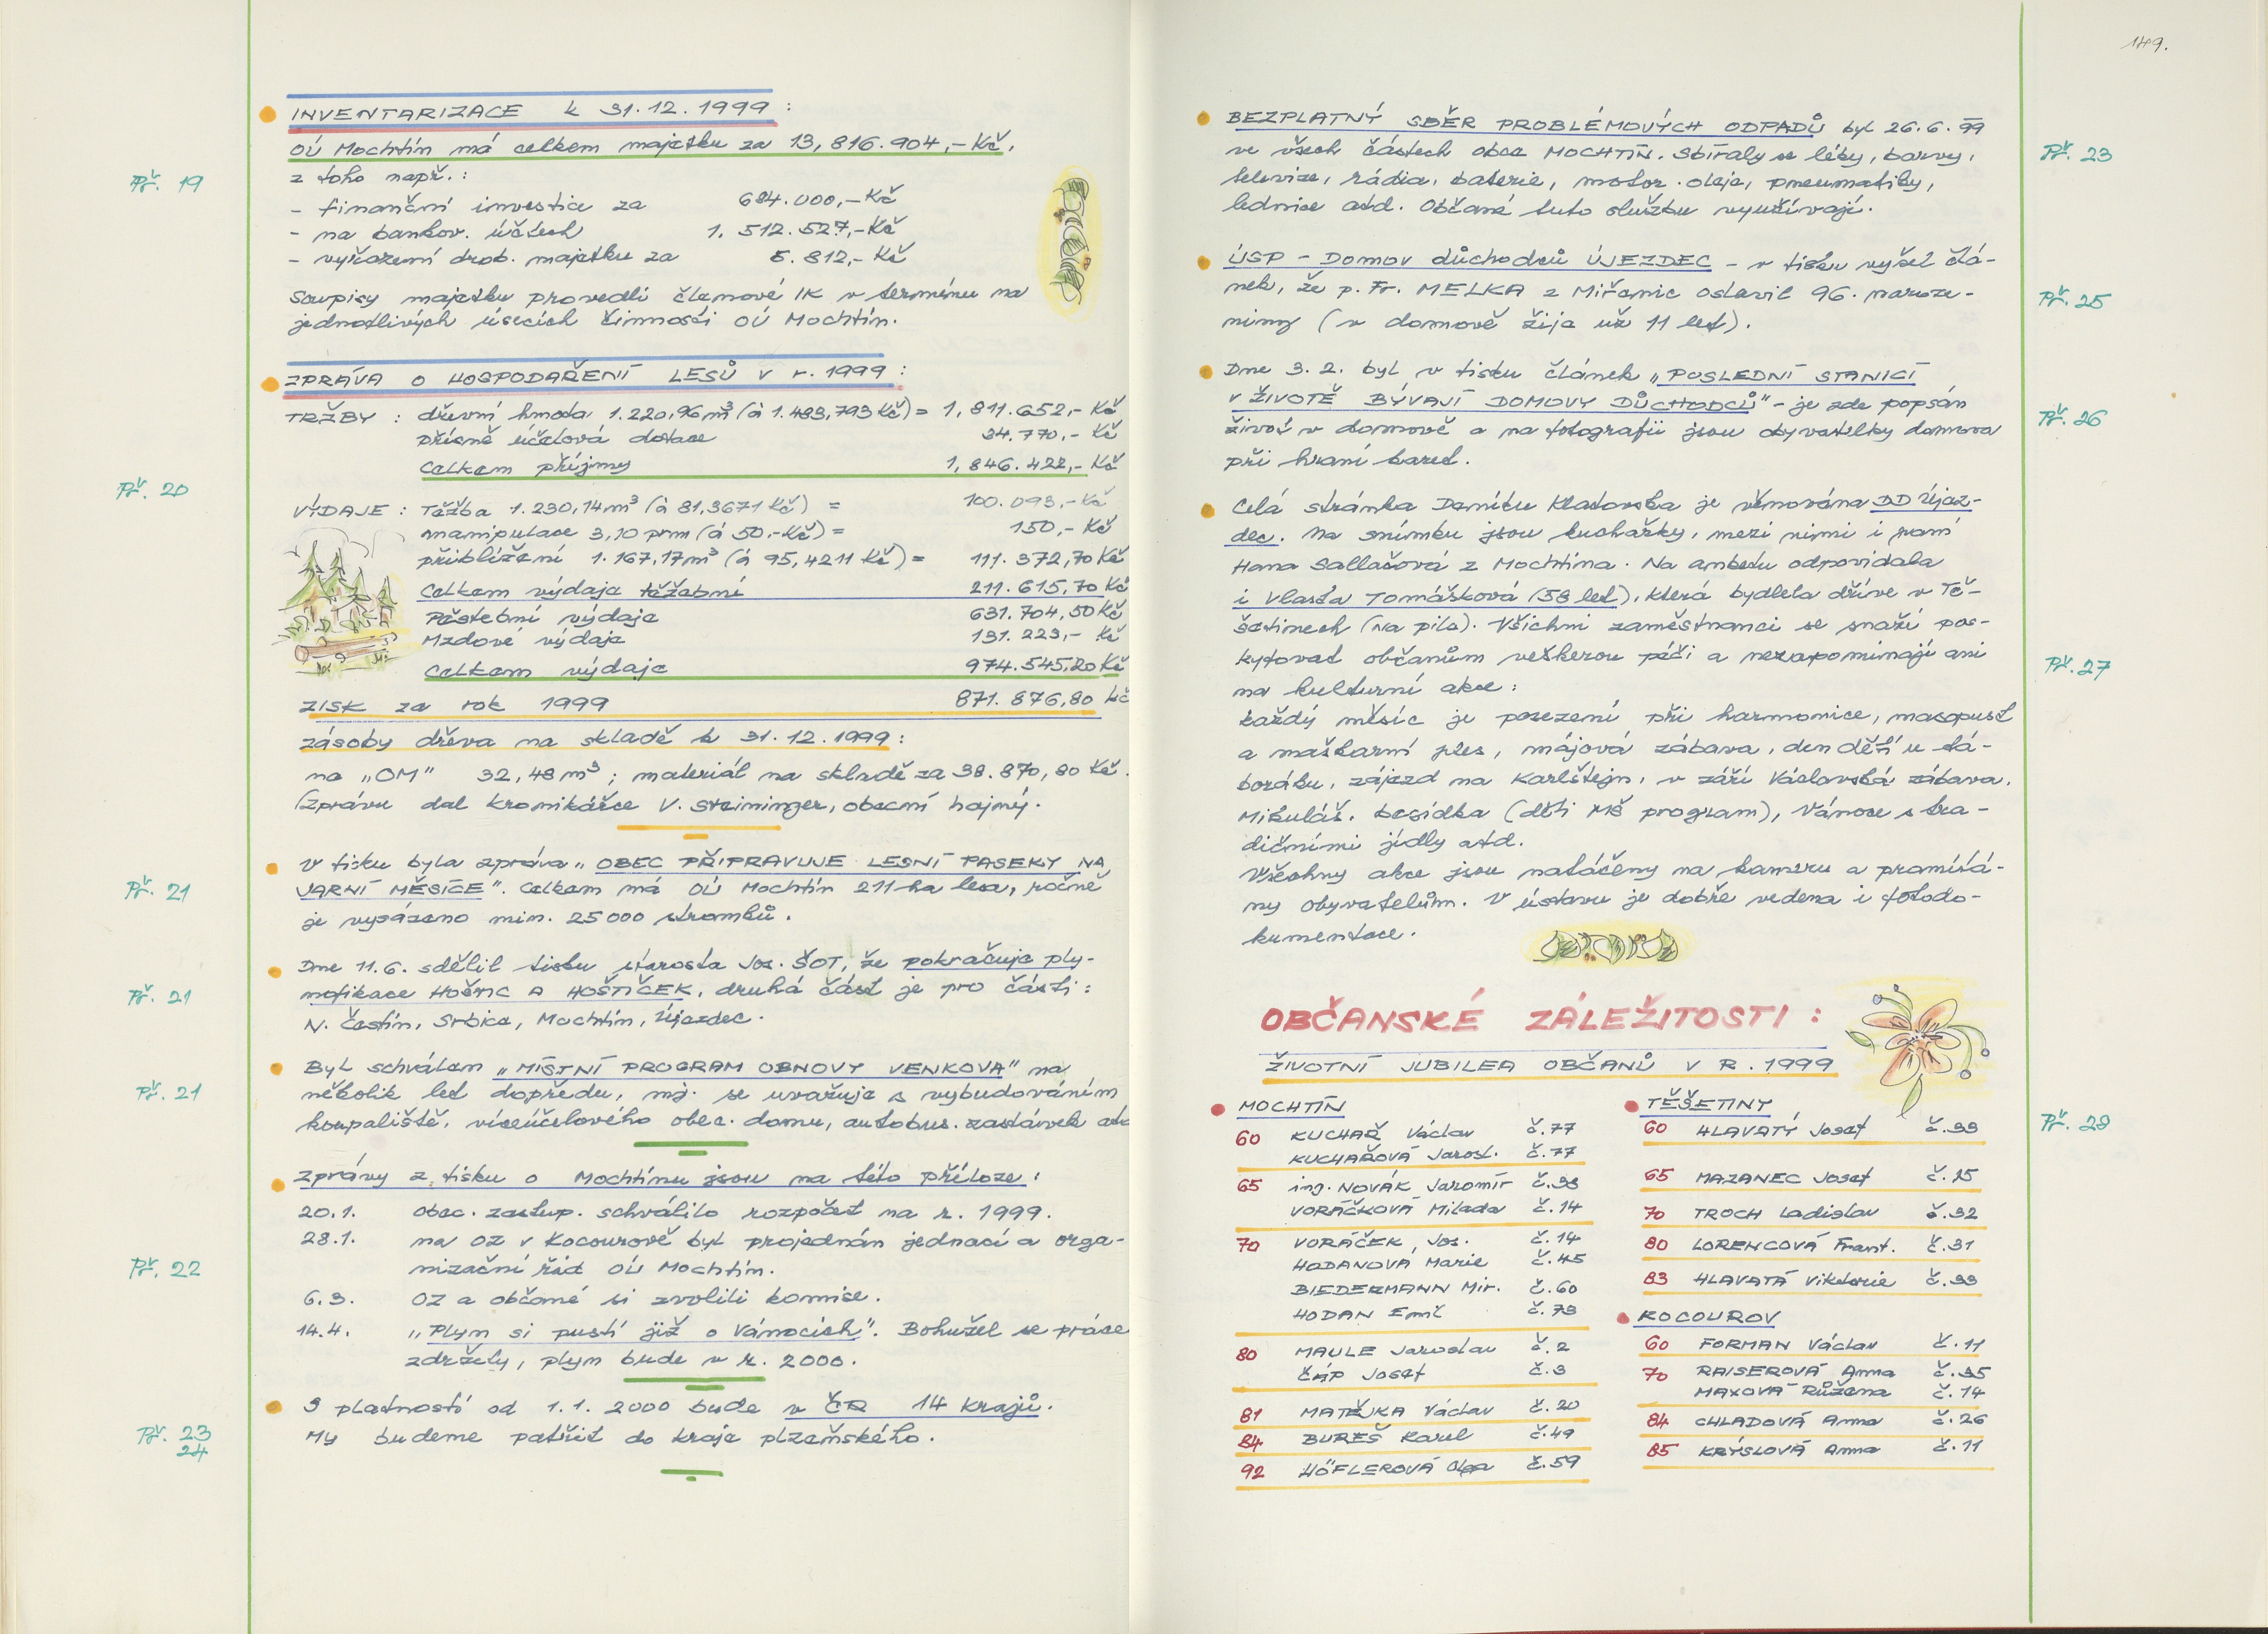 149.
INVENTARIZACE k 31.12.1999 :
OÚ Mochtín má celkem majetku za 13,816.904,- Kč,
Př. 19
z toho např.:
- finanční investice za 684.000,- Kč
- na bankov. účtech 1. 512.527,- Kč
- vyřazení drob. majetku za 5.812,- Kč
Soupisy majetku provedli členové IK v termínu na
jednotlivých úsecích činnosti OÚ Mochtín.
ZPRÁVA O HOSPODAŘENÍ LESŮ V r. 1999 :
TRŽBY : dřevní hmota 1.220,96m³ (à 1.483,793 Kč) = 1,811.652,- Kč
přísně účelová dotace 34.770,- Kč
Celkem příjmy 1,846.422,- Kč
Př. 20
VÝDAJE : Těžba 1.230,14m³ (à 81,3671 Kč) = 100.093,- Kč
manipulace 3,10 prm (á 50,- Kč) = 150,- Kč
přiblížení 1.167,17m³ (á 95,4211 Kč) = 111.372,70 Kč
Celkem výdaje těžební 211.615,70 Kč
Pěstební výdaje 631.704,50 Kč
Mzdové výdaje 131.223,- Kč
Celkem výdaje 974.545,20 Kč
ZISK za rok 1999 871.876,80 Kč
zásoby dřeva na skladě k 31.12.1999 :
na „OM" 32,48 m³ ; materiál na skladě za 38.870,80 Kč.
(Zprávu dal kronikářce V. Steininger, obecní hajný.
V tisku byla zpráva „OBEC PŘIPRAVUJE LESNÍ PASEKY NA
Př. 21
JARNÍ MĚSÍCE". Celkem má OÚ Mochtín 211 ha lesa, ročně
je vysázeno min. 25000 stromků.
Dne 11.6. sdělil tisku starosta Jos. ŠOT, že pokračuje ply-
Př. 21
nofikace HOŠTIC A HOŠTIČEK, druhá část je pro části:
N. Častín, Srbice, Mochtín, Újezdec.
Byl schválen „MÍSTNÍ PROGRAM OBNOVY VENKOVA" na
Př. 21
několik let dopředu, mj. se uvažuje s vybudováním
koupaliště, víceúčelového obec. domu, autobus. zastávek atd
Zprávy z tisku o Mochtínu jsou na této příloze :
20.1. Obec. zastup. schválilo rozpočet na r. 1999.
28.1. na OZ v Kocourově byl projednán jednací a orga-
Př. 22
nizační řád OÚ Mochtín.
6.3. OZ a občané si zvolili komise.
14.4. „Plyn si pustí již o Vánocích". Bohužel se práce
zdržely, plyn bude v r. 2000.
S platností od 1.1. 2000 bude v ČR 14 krajů.
Př. 23
24
My budeme patřit do kraje plzeňského.
BEZPLATNÝ SBĚR PROBLÉMOVÝCH ODPADŮ byl 26.6.99
Př. 23
ve všech částech obce MOCHTÍN. Sbíraly se léky, barvy,
televize, rádia, baterie, motor. oleje, pneumatiky,
lednice atd. Občané tuto službu využívají.
ÚSP - Domov důchodců ÚJEZDEC - v tisku vyšel člá-
Př. 25
nek, že p. Fr. MELKA z Miřenic oslavil 96. naroze-
niny (v domově žije už 11 let).
Dne 3.2. byl v tisku článek „POSLEDNÍ STANICÍ
V ŽIVOTĚ BÝVAJÍ DOMOVY DŮCHODCŮ" - je zde popsán
Př. 26
život v domově a na fotografii jsou obyvatelky domova
při hraní karet.
Celá stránka Deníku Klatovska je věnována DD Újez-
dec. Na snímku jsou kuchařky, mezi nimi i paní
Hana Sallašová z Mochtína. Na anketu odpovídala
i Vlasta Tomášková (58 let), která bydlela dříve v Tě-
šetinech (Na pile). Všichni zaměstnanci se snaží pos-
kytovat občanům veškerou péči a nezapomínají ani
Př. 27
na kulturní akce :
každý měsíc je posezení při harmonice, masopust
a maškarní ples, májová zábava, den dětí u tá-
boráku, zájezd na Karlštejn, v září Václavská zábava,
Mikuláš. besídka (děti MŠ program), Vánoce s tra-
dičními jídly atd.
Všechny akce jsou natáčeny na kameru a promítá-
ny obyvatelům. V ústavu je dobře vedena i fotodo-
kumentace.
OBČANSKÉ ZÁLEŽITOSTI :
ŽIVOTNÍ JUBILEA OBČANŮ V R. 1999
MOCHTÍN
60 KUCHAŘ Václav č.77
KUCHAŘOVÁ Jarosl. č.77
65 ing. NOVÁK Jaromír č.98
VORÁČKOVÁ Milada č.14
70 VORÁČEK Jos. č.14
HODANOVÁ Marie č.45
BIEDERMANN Mir. č.60
HODAN Emil č.79
80 MAULE Jaroslav č.2
ČÁP Josef č.3
81 MATĚJKA Václav č.20
84 BUREŠ Karel č.49
92 HÖFLEROVÁ Olga č.59
TĚŠETINY
Př. 28
60 HLAVATÝ Josef č.33
65 MAZANEC Josef č.15
70 TROCH Ladislav č.32
80 LORENCOVÁ Frant. č.31
83 HLAVATÁ Viktorie č.33
KOCOUROV
60 FORMAN Václav č.11
70 RAISEROVÁ Anna č.35
MAXOVÁ Růžena č.14
84 CHLADOVÁ Anna č.26
85 KRÝSLOVÁ Anna č.11